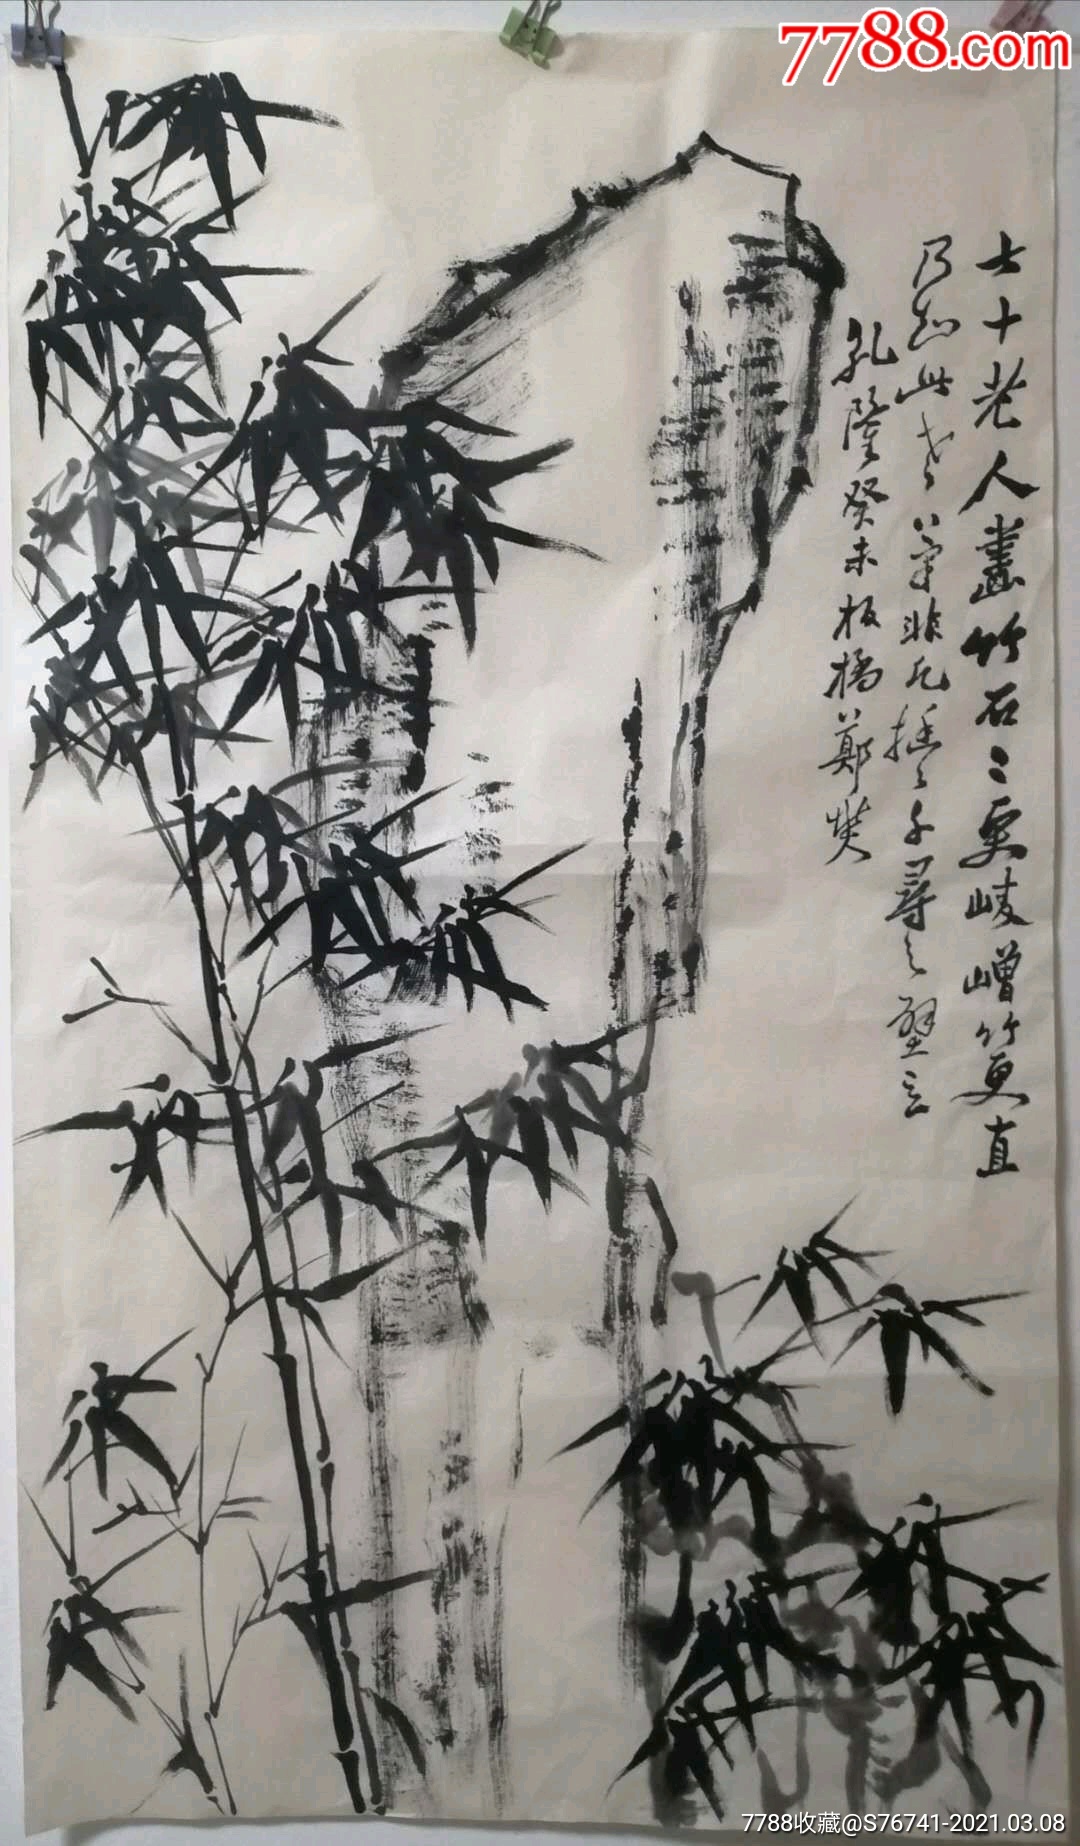 7788.com
七十老人畫竹石〻更崚嶒竹更直
乃知此老筆非凡挺〻千尋之壁立
乾隆癸未板橋鄭燮
7788收藏@S76741-2021.03.08